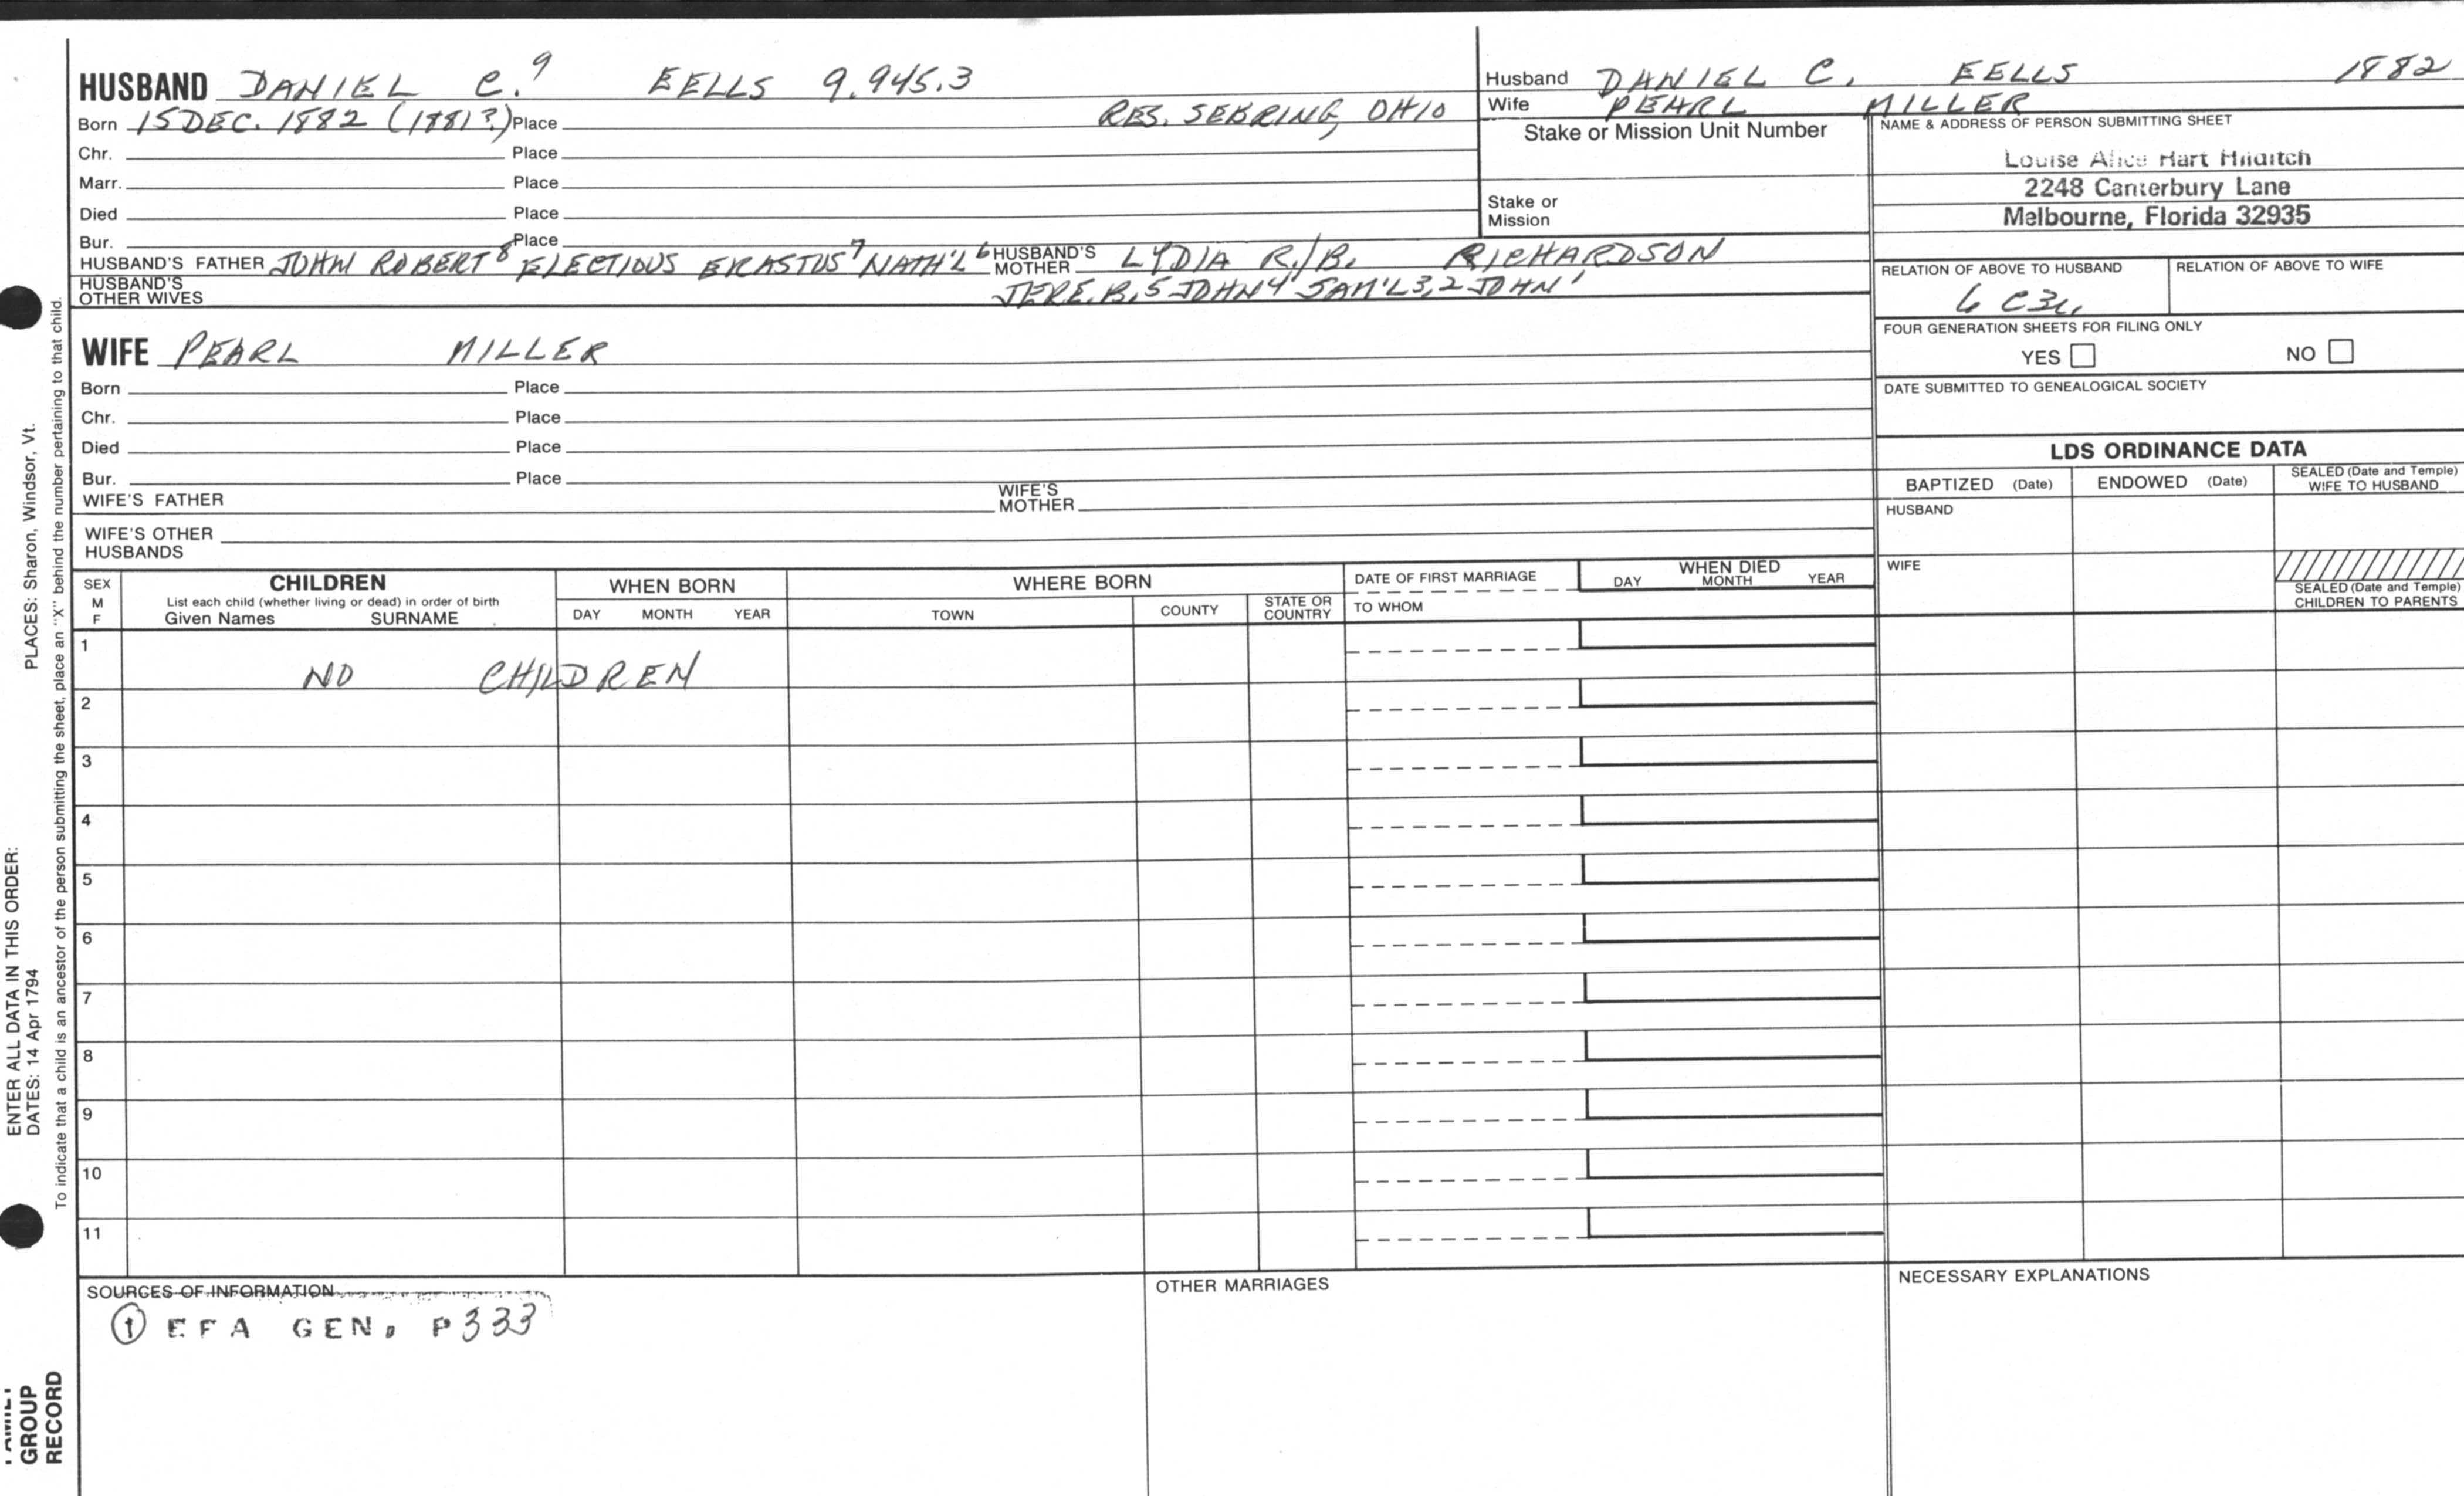 HUSBAND DANIEL C.⁹ EELLS 9.945.3
Born 15 DEC. 1882 (1881?) Place RES. SEBRING, OHIO
Chr. Place
Marr. Place
Died Place
Bur. Place
HUSBAND'S FATHER JOHN ROBERT⁸ ELECTIOUS ERASTUS⁷ NATH'L⁶ HUSBAND'S MOTHER LYDIA R./B. RICHARDSON
HUSBAND'S OTHER WIVES JERE. B.5 JOHN4 SAM'L3,2 JOHN'
WIFE PEARL MILLER
Born Place
Chr. Place
Died Place
Bur. Place
WIFE'S FATHER WIFE'S MOTHER
WIFE'S OTHER HUSBANDS
Husband DANIEL C. EELLS 1882
Wife PEARL MILLER
Stake or Mission Unit Number
Stake or Mission
NAME & ADDRESS OF PERSON SUBMITTING SHEET
Louise Alice Hart Hilditch
2248 Canterbury Lane
Melbourne, Florida 32935
RELATION OF ABOVE TO HUSBAND RELATION OF ABOVE TO WIFE
6 C3
FOUR GENERATION SHEETS FOR FILING ONLY
YES NO
DATE SUBMITTED TO GENEALOGICAL SOCIETY
LDS ORDINANCE DATA
BAPTIZED (Date) ENDOWED (Date) SEALED (Date and Temple) WIFE TO HUSBAND
HUSBAND
WIFE
SEALED (Date and Temple) CHILDREN TO PARENTS
SEX M F
CHILDREN
List each child (whether living or dead) in order of birth
Given Names SURNAME
WHEN BORN
DAY MONTH YEAR
WHERE BORN
TOWN COUNTY STATE OR COUNTRY
DATE OF FIRST MARRIAGE
TO WHOM
WHEN DIED
DAY MONTH YEAR
1
NO CHILDREN
2
3
4
5
6
7
8
9
10
11
SOURCES OF INFORMATION
① EFA GEN. P333
OTHER MARRIAGES
NECESSARY EXPLANATIONS
PLACES: Sharon, Windsor, Vt.
ENTER ALL DATA IN THIS ORDER:
DATES: 14 Apr 1794
To indicate that a child is an ancestor of the person submitting the sheet, place an "X" behind the number pertaining to that child.
GROUP
RECORD